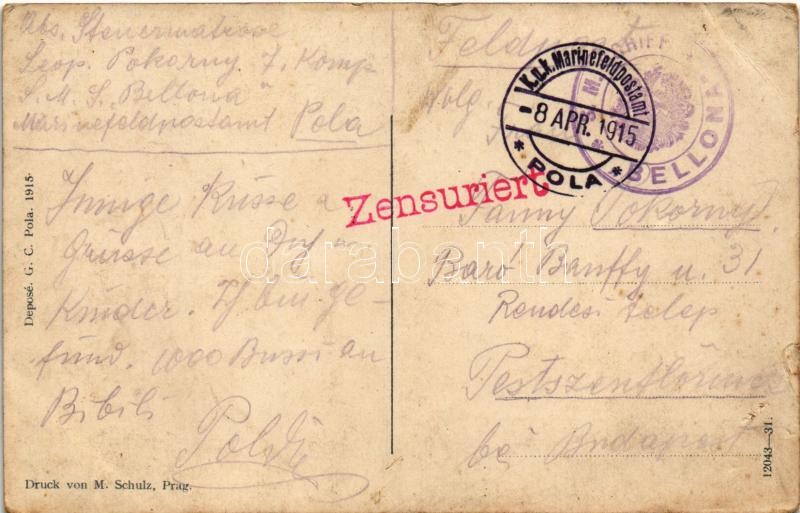 Abs. Steuermatrose
Leop. Pokorny 7. Komp
S. M. S. „Bellona"
Marinefeldpostamt Pola
Innige Küsse u
Grüsse an Dich u
Kinder. Ich bin ge-
sund. 1000 Bussi an
Bibili
Poldi
Deposé. G. C. Pola. 1915.
Druck von M. Schulz, Prag.
Zensuriert
Feldpost
Wolg.
K.u.k. Marinefeldpostamt
- 8 APR. 1915
* POLA *
S. M.
BELLONA
Fanny Pokorny
Baró Banffy u. 31
Rendesi telep
Pestszentlőrincz
bei Budapest
12043—31.
darabanth